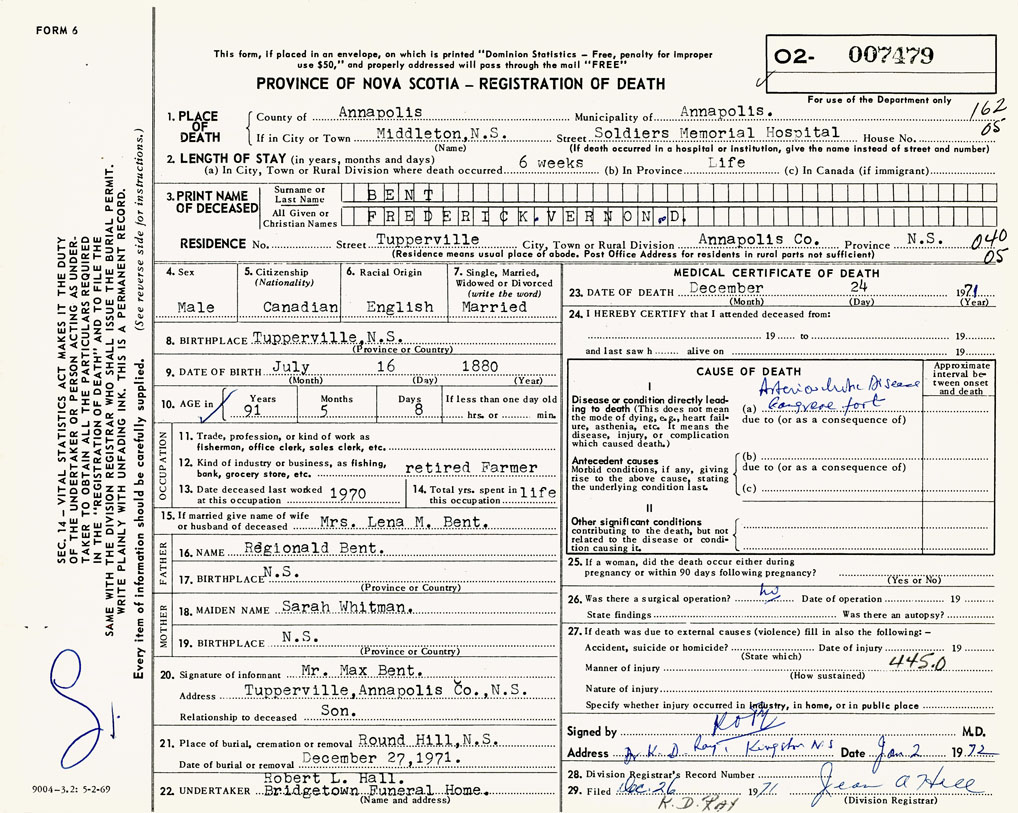 FORM 6
This form, if placed in an envelope, on which is printed "Dominion Statistics – Free, penalty for improper
use $50," and properly addressed will pass through the mail "FREE"
PROVINCE OF NOVA SCOTIA – REGISTRATION OF DEATH
02- 007479
For use of the Department only
162
05
1. PLACE OF DEATH County of Annapolis Municipality of Annapolis.
If in City or Town Middleton,N.S. Street Soldiers Memorial Hospital House No.
(Name) (If death occurred in a hospital or institution, give the name instead of street and number)
2. LENGTH OF STAY (in years, months and days)
(a) In City, Town or Rural Division where death occurred 6 weeks (b) In Province Life (c) In Canada (if immigrant)
3. PRINT NAME OF DECEASED
Surname or Last Name BENT
All Given or Christian Names FREDERICK.VERNON.D.
RESIDENCE No. Street Tupperville City, Town or Rural Division Annapolis Co. Province N.S.
(Residence means usual place of abode. Post Office Address for residents in rural parts not sufficient)
040
05
SEC. 14 – VITAL STATISTICS ACT MAKES IT THE DUTY
OF THE UNDERTAKER OR PERSON ACTING AS UNDER-
TAKER TO OBTAIN ALL THE PARTICULARS REQUIRED
IN THE "REGISTRATION OF DEATH" AND TO FILE THE
SAME WITH THE DIVISION REGISTRAR WHO SHALL ISSUE THE BURIAL PERMIT.
WRITE PLAINLY WITH UNFADING INK. THIS IS A PERMANENT RECORD.
Every item of information should be carefully supplied. (See reverse side for instructions.)
4. Sex Male
5. Citizenship (Nationality) Canadian
6. Racial Origin English
7. Single, Married, Widowed or Divorced (write the word) Married
8. BIRTHPLACE Tupperville,N.S.
(Province or Country)
9. DATE OF BIRTH July 16 1880
(Month) (Day) (Year)
10. AGE in Years 91 Months 5 Days 8 If less than one day old hrs. or min.
OCCUPATION
11. Trade, profession, or kind of work as
fisherman, office clerk, sales clerk, etc.
12. Kind of industry or business, as fishing,
bank, grocery store, etc. retired Farmer
13. Date deceased last worked at this occupation 1970
14. Total yrs. spent in this occupation life
15. If married give name of wife
or husband of deceased Mrs. Lena M. Bent.
FATHER
16. NAME Régionald Bent.
17. BIRTHPLACE N.S.
(Province or Country)
MOTHER
18. MAIDEN NAME Sarah Whitman.
19. BIRTHPLACE N.S.
(Province or Country)
20. Signature of informant Mr. Max Bent.
Address Tupperville,Annapolis Co.,N.S.
Relationship to deceased Son.
21. Place of burial, cremation or removal Round Hill,N.S.
Date of burial or removal December 27,1971.
Robert L. Hall.
22. UNDERTAKER Bridgetown Funeral Home.
(Name and address)
9004–3.2: 5-2-69
MEDICAL CERTIFICATE OF DEATH
23. DATE OF DEATH December 24 1971
(Month) (Day) (Year)
24. I HEREBY CERTIFY that I attended deceased from:
19 to 19
and last saw h alive on 19
CAUSE OF DEATH
Approximate interval be-
tween onset
and death
I
Disease or condition directly lead-
ing to death (This does not mean
the mode of dying, e.g., heart fail-
ure, asthenia, etc. It means the
disease, injury, or complication
which caused death.)
Disease
(a) Gangrene foot
due to (or as a consequence of)
Antecedent causes
Morbid conditions, if any, giving
rise to the above cause, stating
the underlying condition last.
(b)
due to (or as a consequence of)
(c)
II
Other significant conditions
contributing to the death, but not
related to the disease or condi-
tion causing it.
25. If a woman, did the death occur either during
pregnancy or within 90 days following pregnancy?
(Yes or No)
26. Was there a surgical operation? no Date of operation 19
State findings Was there an autopsy?
27. If death was due to external causes (violence) fill in also the following: –
Accident, suicide or homicide? Date of injury 19
(State which)
Manner of injury 445.0
(How sustained)
Nature of injury
Specify whether injury occurred in industry, in home, or in public place
Signed by M.D.
Address Dr K. D. Ray, Kingston N.S Date Jan 2 1972
28. Division Registrar's Record Number
29. Filed Dec. 26 1971 Jean A Hill
K. D. RAY (Division Registrar)